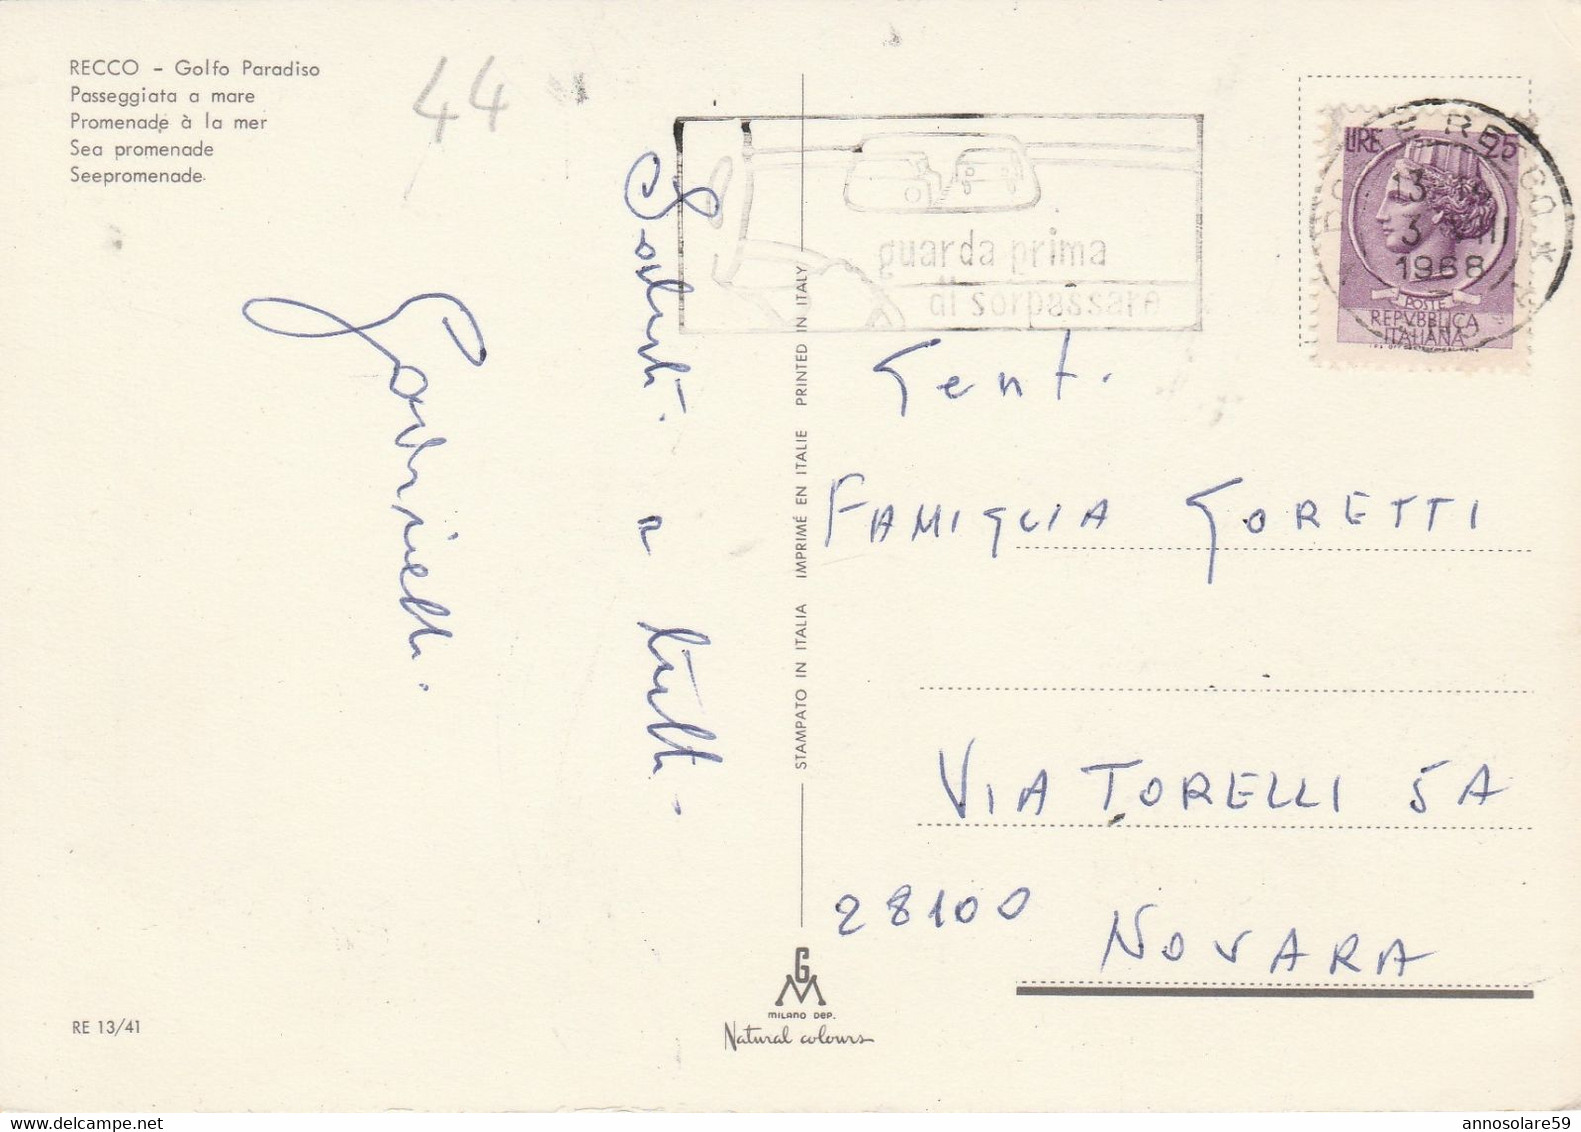 RECCO - Golfo Paradiso
Passeggiata a mare
Promenade à la mer
Sea promenade
Seepromenade
44
guarda prima
di sorpassare
LIRE 25
RECCO
13
3
II
1968
POSTE
REPVBBLICA
ITALIANA
Saluti
a tutti.
STAMPATO IN ITALIA IMPRIMÉ EN ITALIE PRINTED IN ITALY
Gent.
FAMIGLIA GORETTI
VIA TORELLI 5A
28100
NOVARA
GM
MILANO DEP.
Natural colours
RE 13/41
delcampe.net
annosolare59